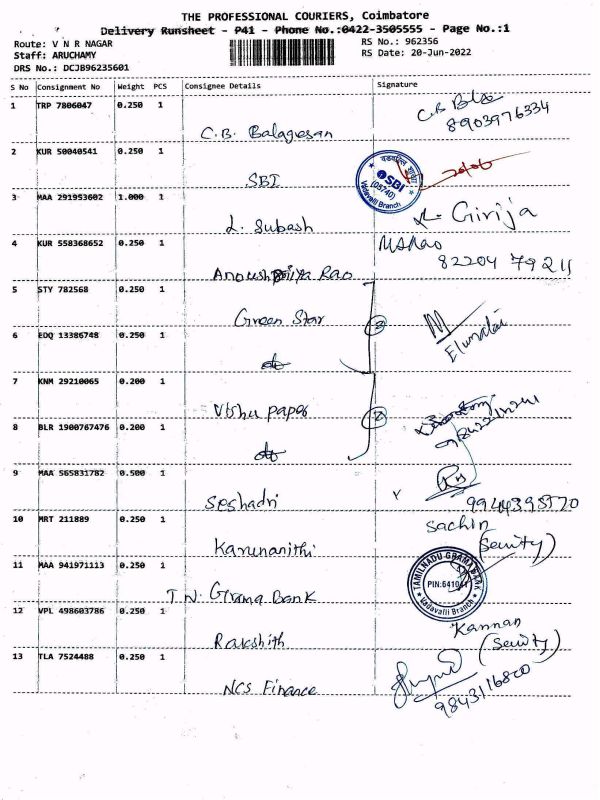 THE PROFESSIONAL COURIERS, Coimbatore
Delivery Runsheet - P41 - Phone No.:0422-3505555 - Page No.:1
Route: V N R NAGAR
RS No.: 962356
Staff: ARUCHAMY
RS Date: 20-Jun-2022
DRS No.: DCJB96235601
S No Consignment No Weight PCS Consignee Details Signature
1 TRP 7806047 0.250 1
C.B. Balagesan
8903976334
2 KUR 50040541 0.250 1
SBI
SBI
(05740)
Vadavalli Branch
3 MAA 291953602 1.000 1
L. Subash
L. Girija
4 KUR 558368652 0.250 1
MSRao
Anoushpriya Rao
82204 79211
5 STY 782568 0.250 1
Green Star
6 EDQ 13386748 0.250 1
do
Elumalai
7 KNM 29210065 0.200 1
Vishu paper
8 BLR 1900767476 0.200 1
do
9 MAA 565831782 0.500 1
Seshadri
9944395520
10 MRT 211889 0.250 1
Sachin
Karunanithi
(Seurity)
11 MAA 941971113 0.250 1
T.N. Grama Bank
TAMILNADU GRAMA BANK
Vadavalli Branch
12 VPL 498603786 0.250 1
Rakshith
Kannan
(Seurity)
13 TLA 7524488 0.250 1
NCS Finance
9843116820